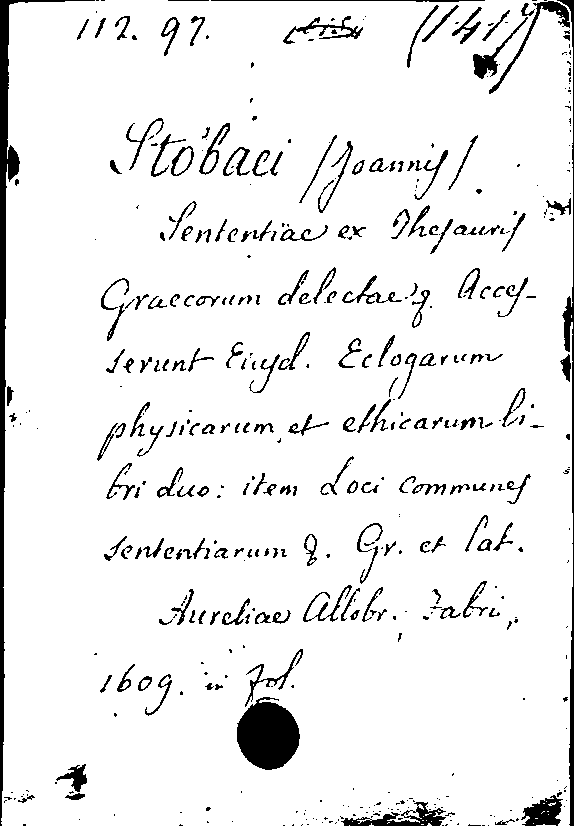 112. 97. (141)
Stobaei (Joannis)
Sententiae ex Thesauris
Graecorum delectae &. Acces-
serunt Eiusd. Eclogarum
physicarum et ethicarum li-
bri duo: item Loci communes
sententiarum &. Gr. et lat.
Aureliae Allobr., Fabri,
1609. in fol.